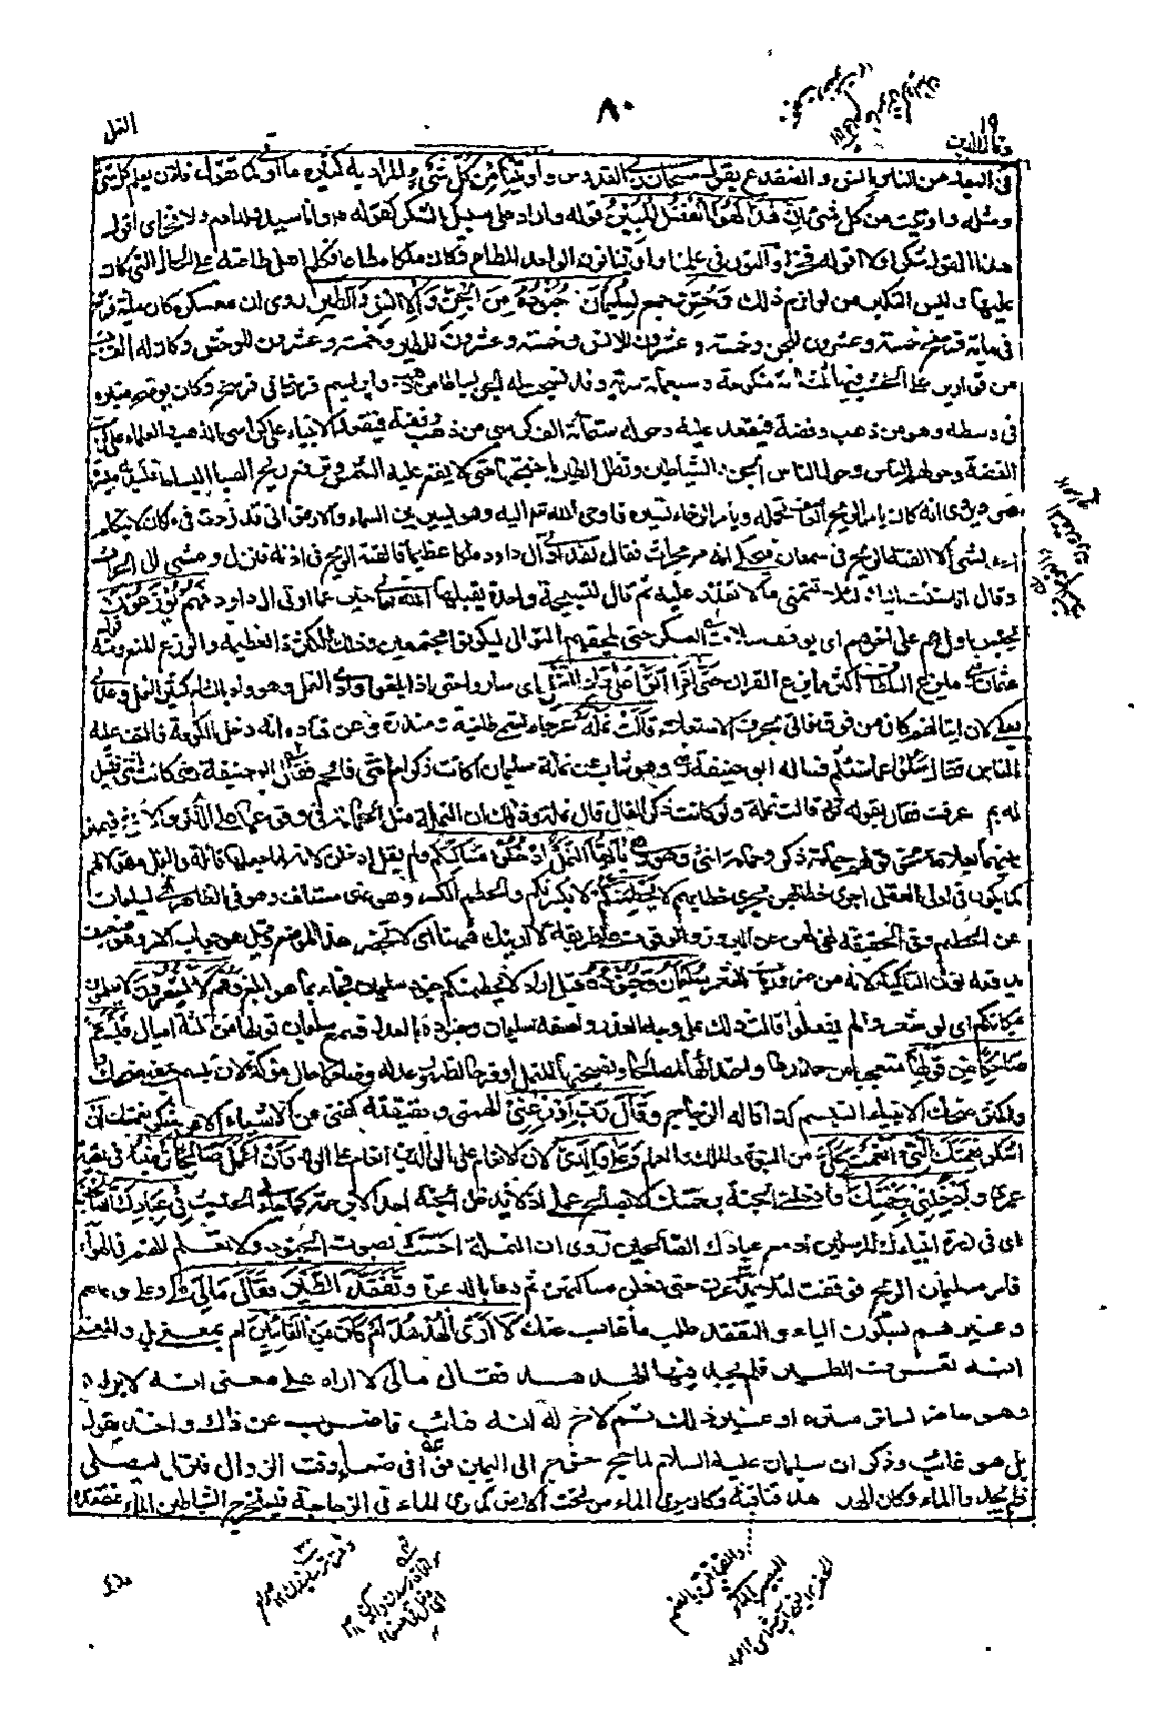 ٨٠
١٩
وقال الذين
النمل
في البعد من الناس انس و الضفدع يقول سبحان ربي القدوس و اوتينا من كل شيء والمراد به كثرة ما اوتي كما تقول فلان يعلم كل شيء
ومثله و اوتيت من كل شيء ان هذا لهو الفضل المبين قوله وارد على سبيل الشكر كقوله م وانا سيد ولد ادم ولا فخر اي اقول
هذا القول شكرا ولا اقوله فخرا والنون في علمنا و اوتينا نون الواحد المطاع وكان ملكا مطاعا فكلم اهل طاعته على الحال التي كان
عليها وليس التكبر من لوازم ذلك وحشر جمع لسليمان جنوده من الجن والانس والطير روي ان معسكره كان مائة فرسخ
في مائة فرسخ خمسة وعشرون للجن وخمسة وعشرون للانس وخمسة وعشرون للطير وخمسة وعشرون للوحش وكان له الف بيت
من قوارير على الخشب فيها ثلثمائة منكوحة وسبعمائة سرية وقد نسجت له الجن بساطا من ذهب وابريسم فرسخا في فرسخ وكان يوضع منبره
في وسطه وهو من ذهب وفضة فيقعد عليه وحوله ستمائة الف كرسي من ذهب وفضة فيقعد الانبياء على كراسي الذهب والعلماء على كراسي
الفضة وحولهم الناس وحول الناس الجن و الشياطين وتظل الطير باجنحتها حتى لا يقع عليه الشمس وترفع ريح الصبا البساط فتسير به مسيرة
شهر ويروى انه كان يامر الريح العاصف تحمله ويامر الرخاء تسيره فاوحى الله تع اليه وهو يسير بين السماء والارض اني قد زدت في ملكك لا يتكلم
احد بشيء الا القته الريح في سمعك فيحكى انه مر بحراث فقال لقد اوتي آل داود ملكا عظيما فالقته الريح في اذنه فنزل و مشى الى الحراث
وقال انما مشيت اليك لئلا تتمنى ما لا تقدر عليه ثم قال لتسبيحة واحدة يقبلها الله تعالى خير مما اوتي ال داود فهم يوزعون
يحبس اولهم على اخرهم اي يوقف سلاف العسكر حتى يلحقهم التوالي ليكونوا مجتمعين وذلك للكثرة العظيمة والوزع المنع ومنه قول
عثمان ما يزع السلطان اكثر مما يزع القران حتى اذا اتوا على واد النمل اي ساروا حتى اذا بلغوا وادي النمل وهو واد بالشام كثير النمل وعدي
بعلى لان اتيانهم كان من فوق فاتى بحرف الاستعلاء قالت نملة عرجاء تسمى طاخية او منذرة وعن قتادة انه دخل الكوفة فالتف عليه
الناس فقال سلوا عما شئتم فساله ابو حنيفة وهو شاب عن نملة سليمان اكانت ذكرا ام انثى فافحم فقال ابو حنيفة رض كانت انثى فقيل
له بم عرفت فقال بقوله تعالى قالت نملة ولو كانت ذكرا لقال قال نملة وذلك ان النملة مثل الحمامة في وقوعها على الذكر والانثى فيميز
بينهما بعلامة نحو قولهم حمامة ذكر وحمامة انثى وهو وهي يا ايها النمل ادخلوا مساكنكم ولم يقل ادخلن لانه لما جعلها قائلة والنمل مقولا لهم
كما يكون في اولي العقل اجرى خطابهن مجرى خطابهم لا يحطمنكم لا يكسرنكم والحطم الكسر وهو نهي مستانف وهو في الظاهر نهي لسليمان
عن الحطم وفي الحقيقة نهي لهن عن البروز والوقوف على طريقة لا ارينك ههنا اي لا تحضر هذا الموضع وقيل هو جواب الامر وهو ضعيف
يدفعه نون التاكيد لانه من ضرورات الشعر سليمان وجنوده قيل اراد لا يحطمنكم جنود سليمان فجاء بما هو ابلغ وهم لا يشعرون لا يعلمون
بمكانكم اي لو شعروا لم يفعلوا قالت ذلك على وجه العذر واصفة سليمان وجنوده بالعدل فسمع سليمان قولها من ثلثة اميال فتبسم
ضاحكا من قولها متعجبا من حذرها واهتدائها لمصالحها ونصيحتها للنمل او فرحا لظهور عدله وضاحكا حال مؤكدة لان تبسم بمعنى ضحك
واكثر ضحك الانبياء التبسم كذا قاله الزجاج وقال رب اوزعني الهمني وحقيقته كفني عن الاشياء الا عن شكر نعمتك ان
اشكر نعمتك التي انعمت علي من النبوة والملك والعلم وعلى والدي لان الانعام على الوالدين انعام على الولد وان اعمل صالحا ترضاه في بقية
عمري وادخلني برحمتك وادخلني الجنة برحمتك لا بصالح عملي اذ لا يدخل الجنة احد الا برحمته كما جاء في الحديث في عبادك الصالحين
اي في زمرة انبياءك المرسلين او مع عبادك الصالحين روي ان النملة احست بصوت الجنود ولا تعلم انهم في الهواء
فامر سليمان الريح فوقفت لئلا يذعرن حتى دخلن مساكنهن ثم دعا بالدعوة وتفقد الطير فقال مالي مكي وعلي وعاصم
وغيرهم بسكون الياء والتفقد طلب ما غاب عنك لا ارى الهدهد ام كان من الغائبين ام بمعنى بل والمعنى
انه تعرف الطير فلم يجد فيها الهدهد فقال مالي لا اراه على معنى انه لا يراه
وهو حاضر لساتر ستره او غير ذلك ثم لاح له انه غائب فاضرب عن ذلك واخذ يقول
بل هو غائب وذكر ان سليمان عليه السلام لما حج خرج الى اليمن فوافى صنعاء وقت الزوال فنزل ليصلي
فلم يجدوا الماء وكان الهدهد قناقنه وكان يرى الماء من تحت الارض كما يرى الماء في الزجاجة فيستخرج الشياطين الماء فتفقده